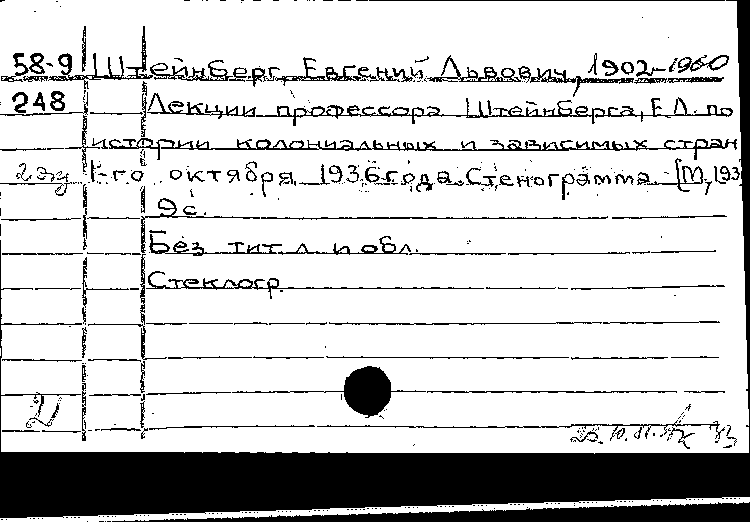 58-9 Штейнберг, Евгений Львович, 1902-1960
248 Лекции профессора Штейнберга, Е.Л. по
истории колониальных и зависимых стран
2 экз 1-го октября 1936 года. Стенограмма. [М., 193
9 с.
Без тит. л. и обл.
Стеклогр.
2